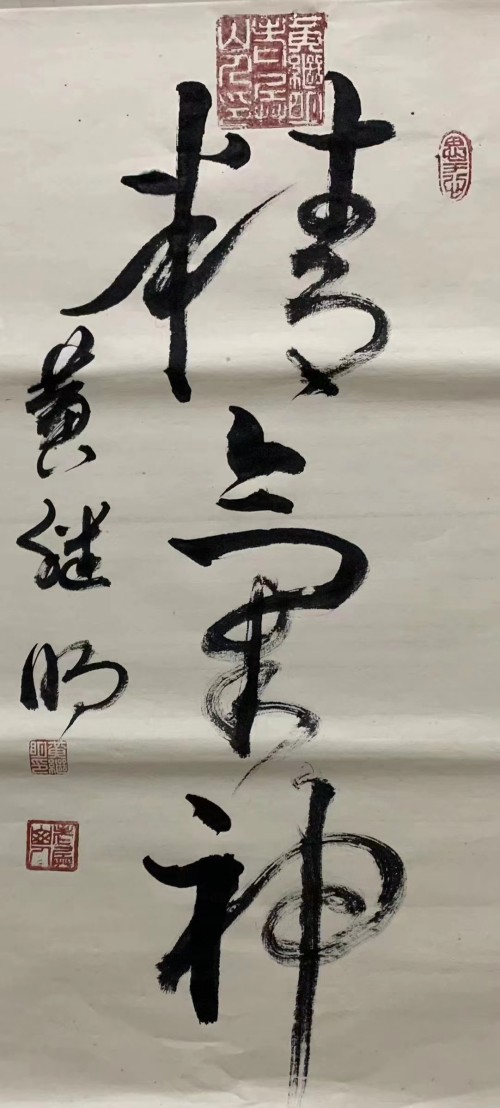 精氣神
黄继明